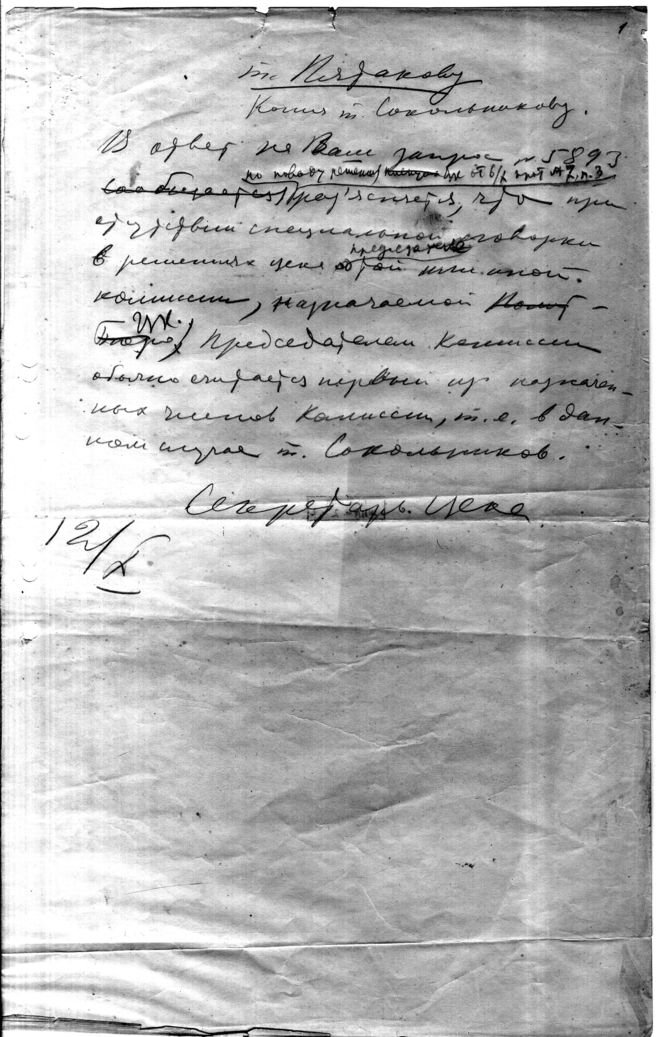 1
т. Пятакову
Копия т. Сокольникову.
В ответ на Ваш запрос № 5893
по поводу решения ЦК от 6/X прот № 2, п. 3
сообщается раз'ясняется, что при
отсутствии специальной оговорки
в решениях цека о председателе той или иной
комиссии, назначаемой Полит-
бюро ЦК, Председателем Комиссии
обычно считается первый из назначен-
ных членов Комиссии, т.е. в дан-
ном случае т. Сокольников.
Секретарь Цека
12/X